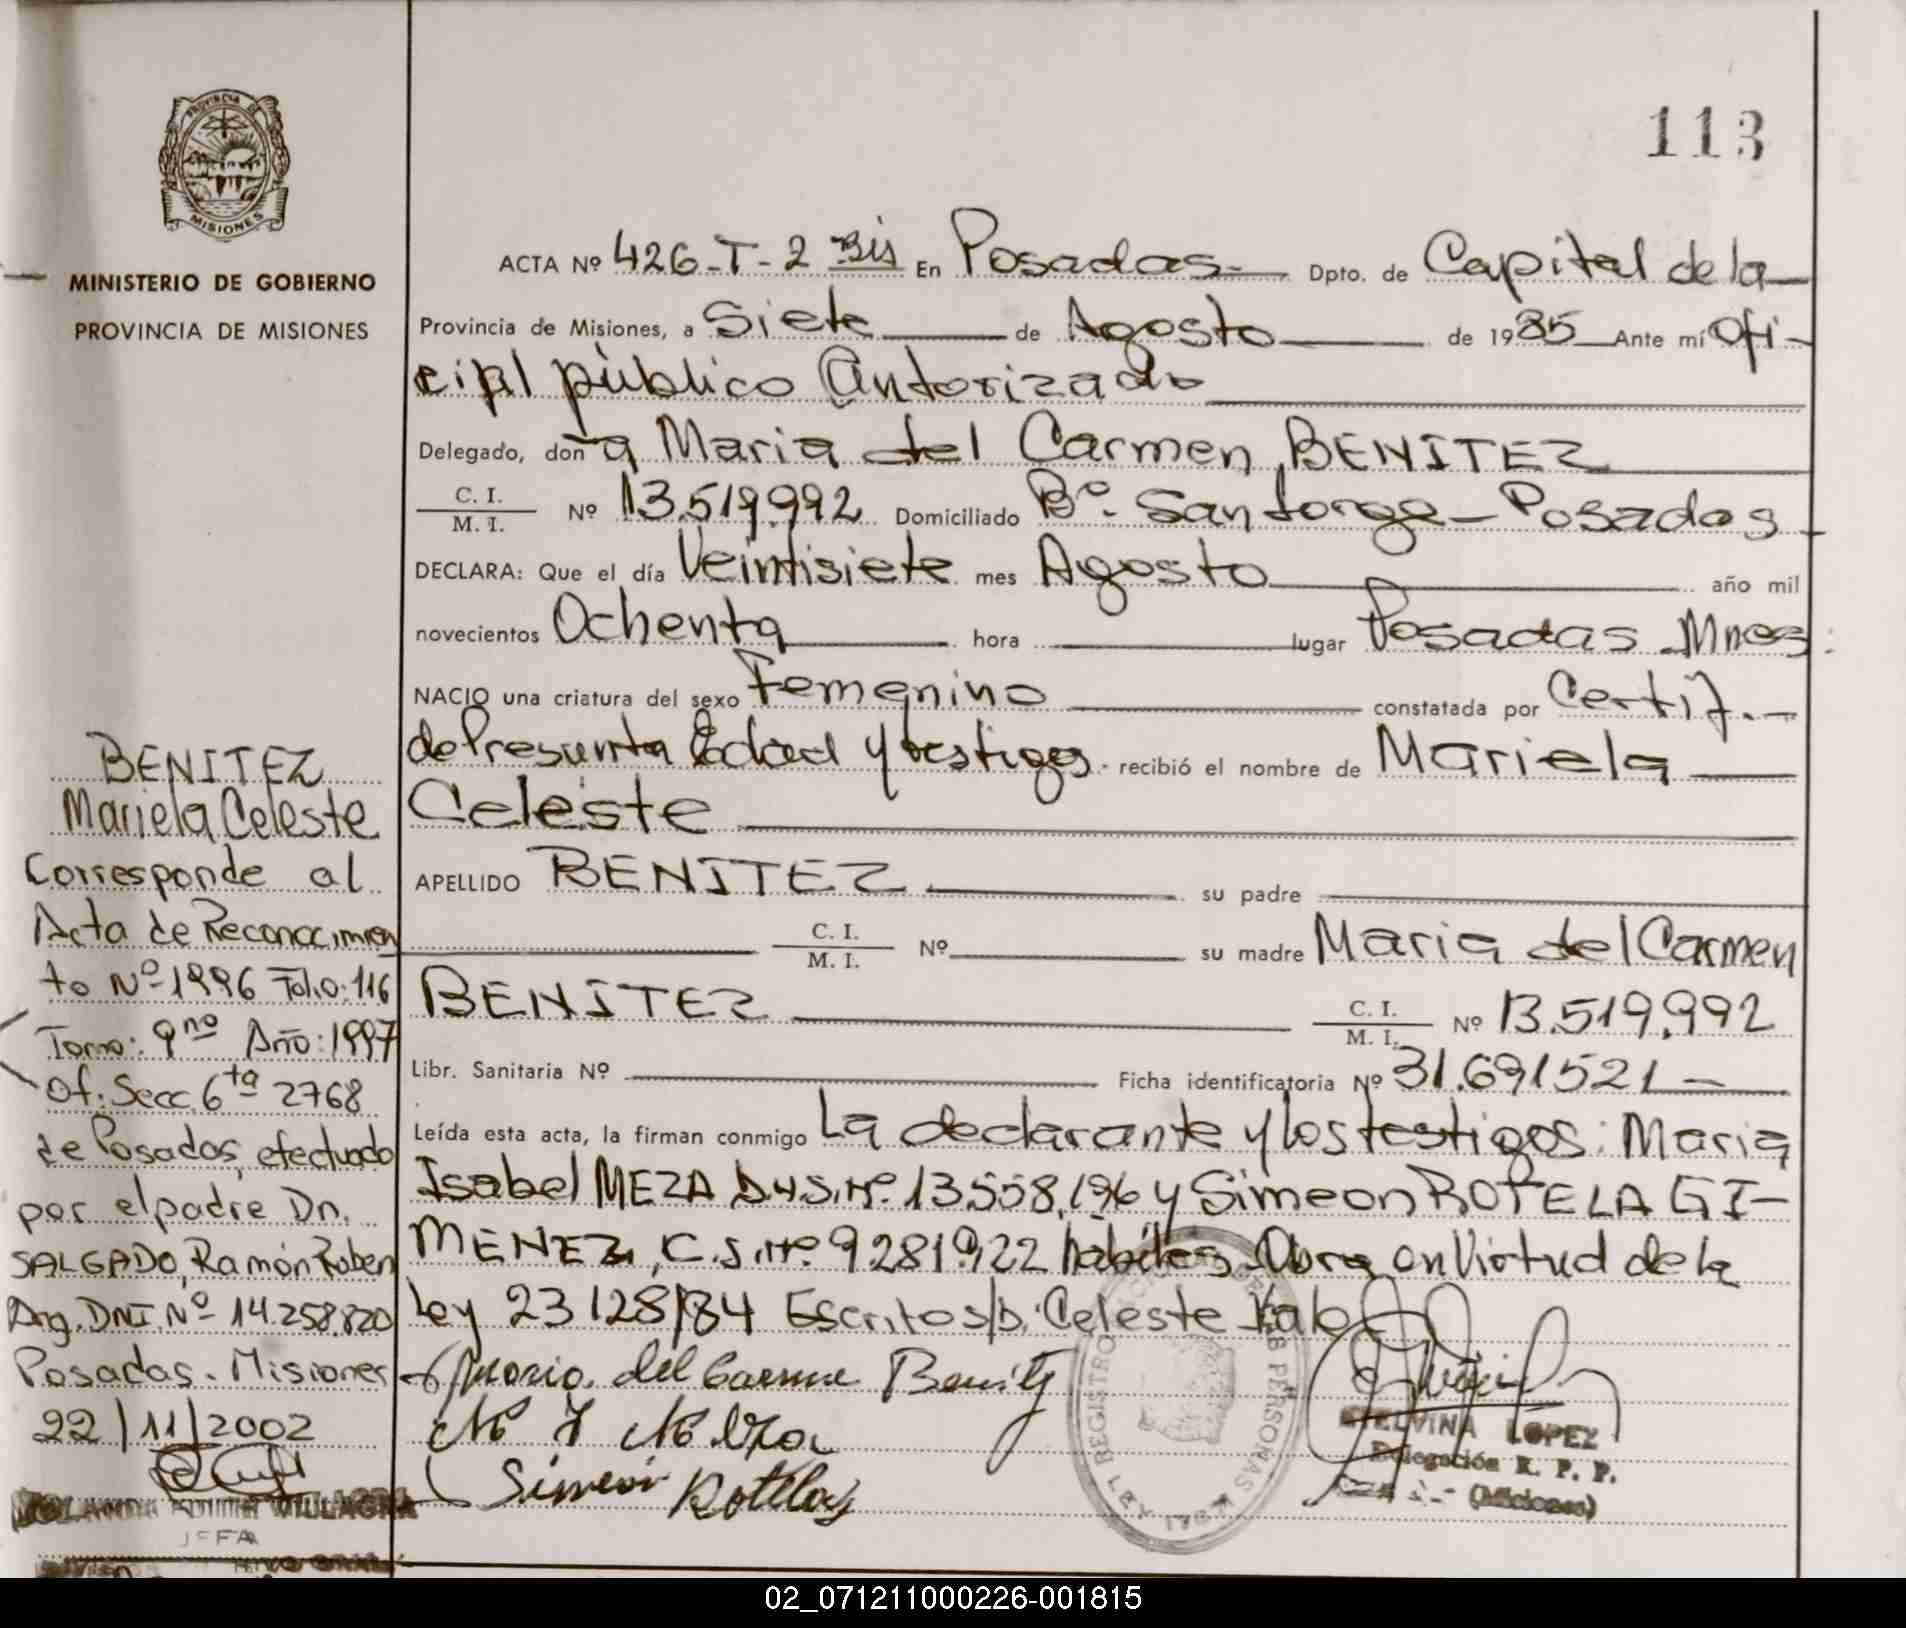 113
PROVINCIA DE
MISIONES
MINISTERIO DE GOBIERNO
PROVINCIA DE MISIONES
ACTA Nº 426-T-2 Bis En Posadas Dpto. de Capital de la
Provincia de Misiones, a Siete de Agosto de 1985 Ante mí Ofi-
cial público Autorizado
Delegado, doña Maria del Carmen BENITEZ
C. I.
M. I. Nº 13.519.992 Domiciliado Bº. San Jorge - Posadas
DECLARA: Que el día Veintisiete mes Agosto año mil
novecientos Ochenta hora lugar Posadas Mnes
NACIO una criatura del sexo Femenino constatada por Certif.
de Presunta Edad y testigos. recibió el nombre de Mariela
Celeste
APELLIDO BENITEZ su padre
C. I.
M. I. Nº su madre Maria del Carmen
BENITEZ C. I.
M. I. Nº 13.519.992
Libr. Sanitaria Nº Ficha identificatoria Nº 31.691521
Leída esta acta, la firman conmigo La declarante y los testigos: Maria
Isabel MEZA D.N.I.Nº. 13.558.196 y Simeon ROTELA GI-
MENEZ, C.I.Nº. 9281922 hábiles. Obra en Virtud de la
Ley 23128/84 Escrito s/b: Celeste Vale
Maria del Carmen Benitez
Simeón Rotela
REGISTRO PERSONAS
LEY
ETELVINA LOPEZ
Delegación R. P. P.
(Misiones)
BENITEZ
Mariela Celeste
Corresponde al
Acta de Reconocimien
to Nº 1996 Folio: 116
Tomo: 9no Año: 1997
Of. Secc. 6ta 2768
de Posadas, efectuado
por el padre Dn.
SALGADO, Ramón Ruben
Arg. DNI. Nº 14.258.820
Posadas. Misiones
22/11/2002
VILLAGRA
JEFA
02_071211000226-001815